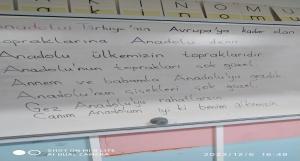 K I N O M U
Anadolu Türkiye'nin Avrupa'ya kadar olan
topraklarına Anadolu denir
Anadolu ülkemizin topraklarıdır
Anadolu'nun toprakları çok güzel
Annem ve babamla Anadolu'yu gezdik
Anadolu'nun çiçekleri çok güzel
Gez Anadolu'yu
Canım Anadolum iyi ki benim
SHOT ON MI 9 LITE
AI DUAL CAMERA
2022/12/6 16:48